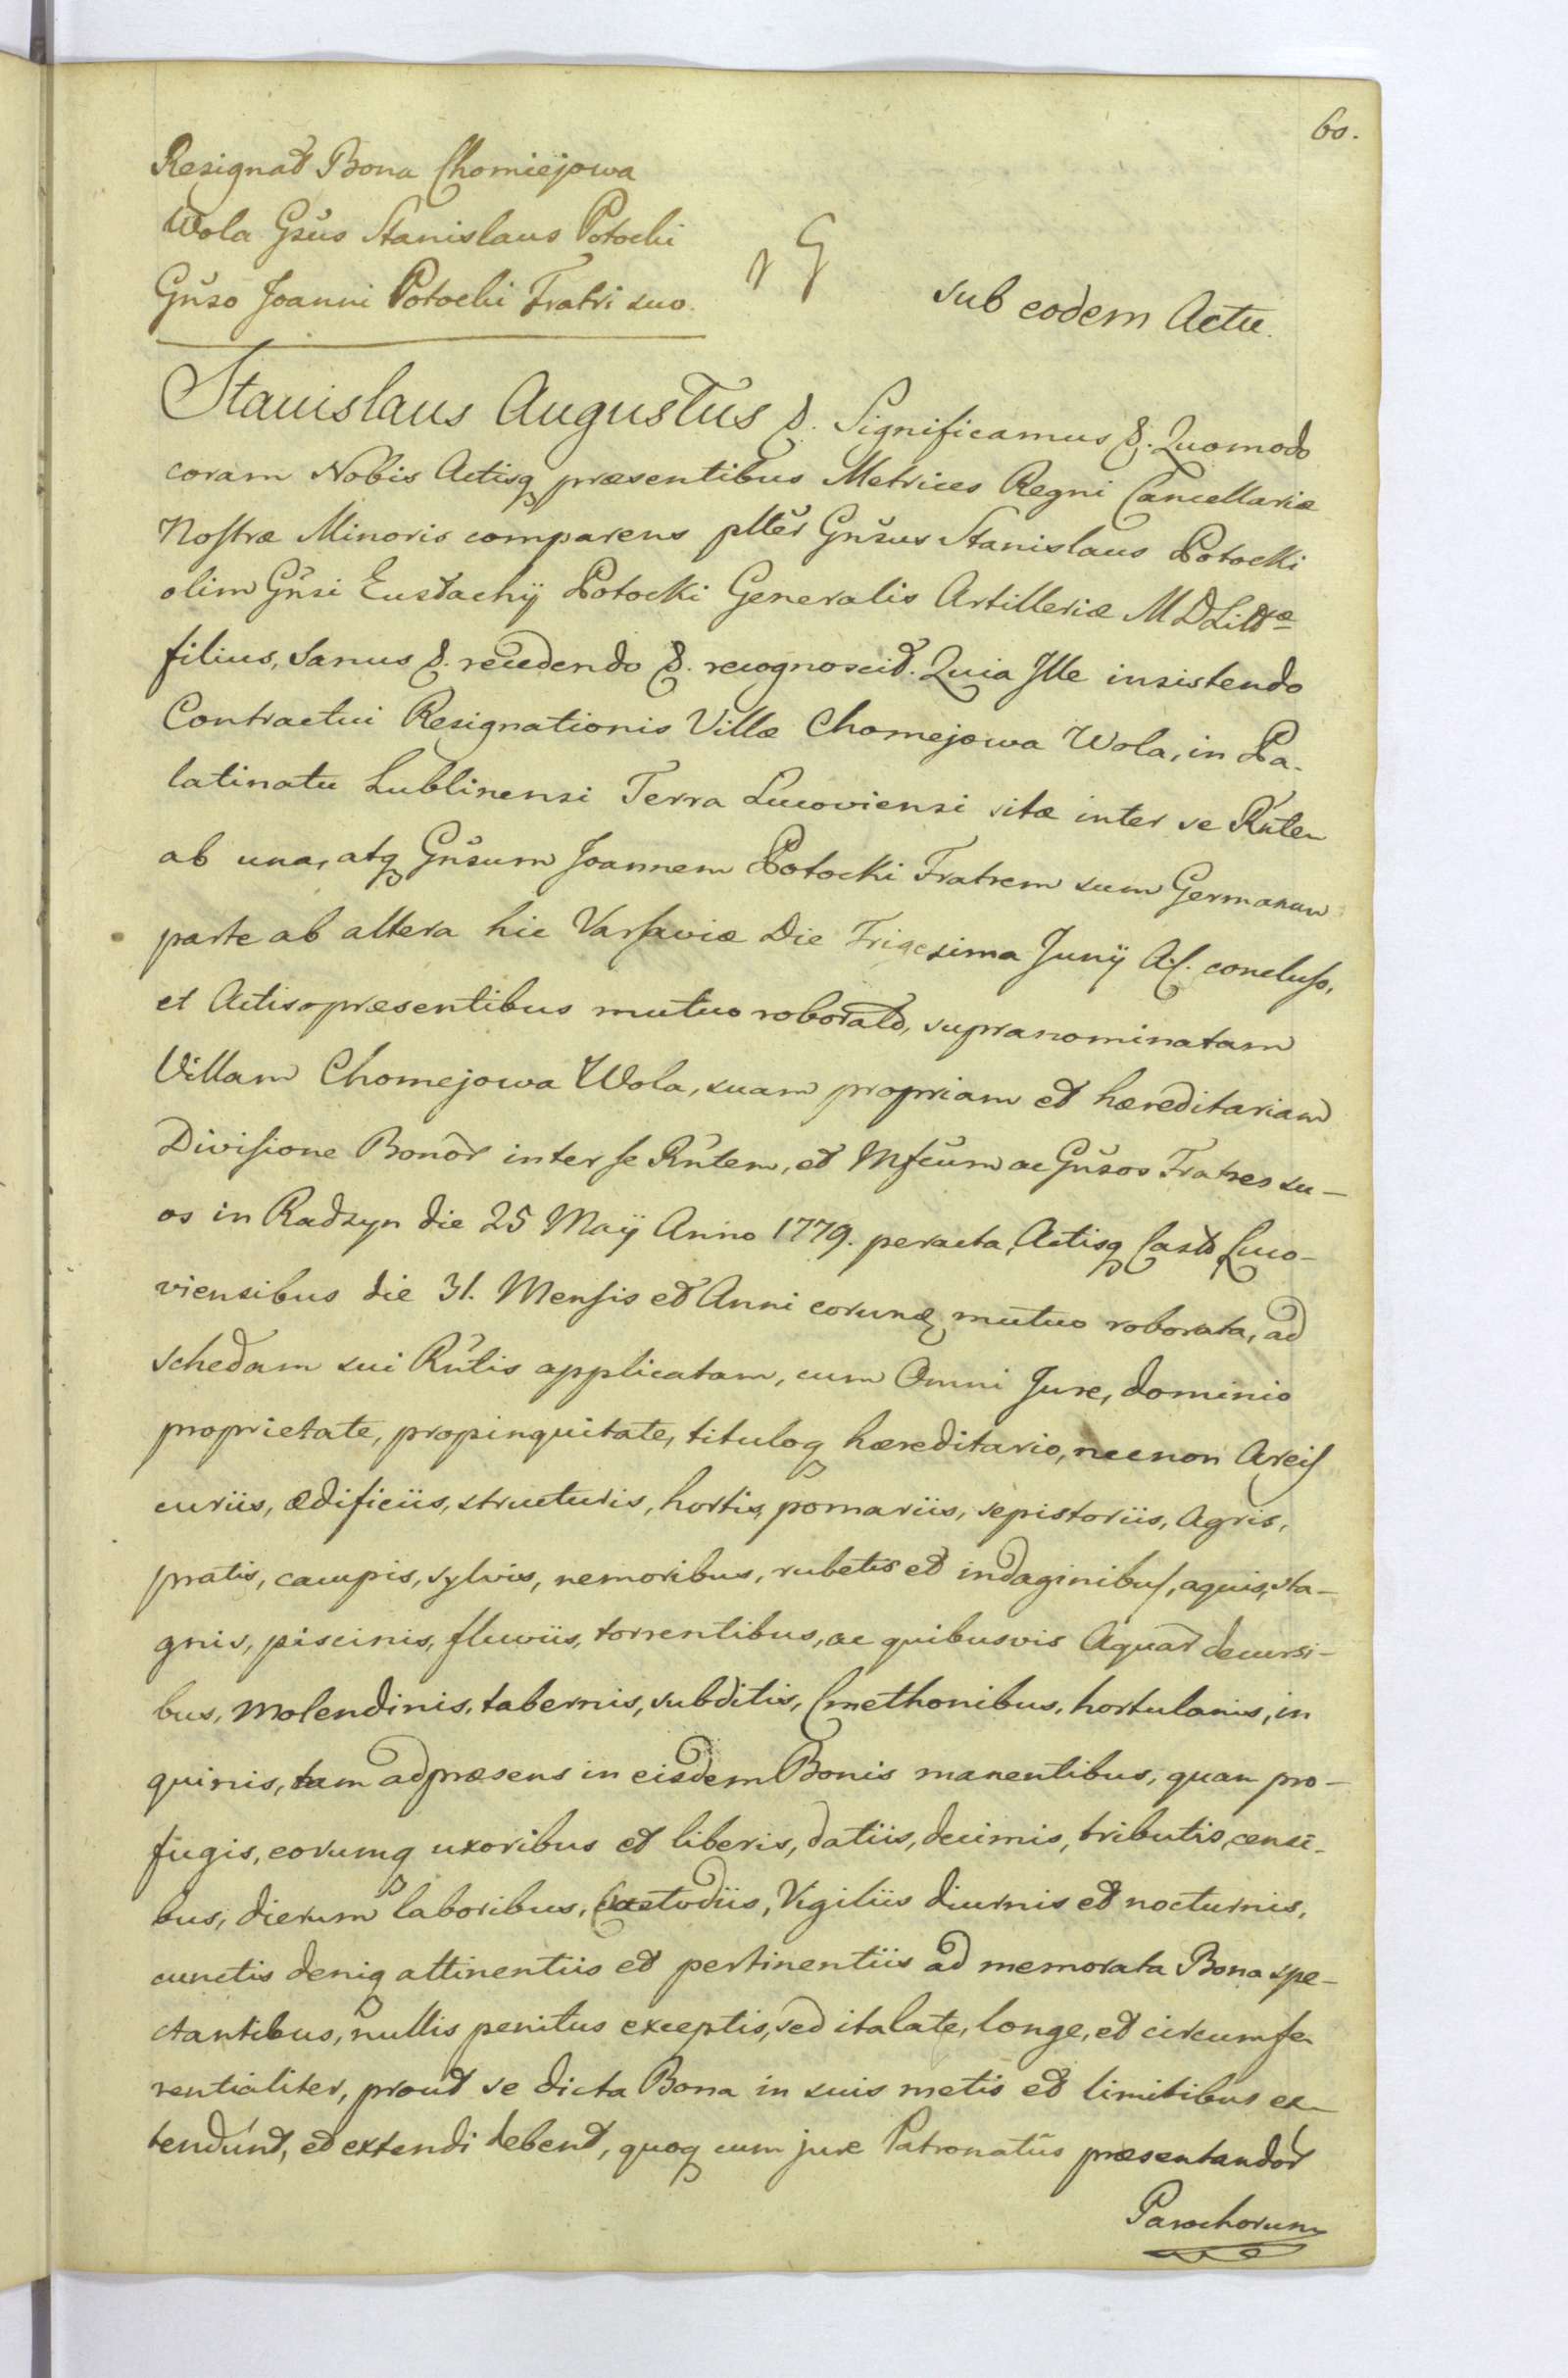 60.
Resignat Bona Chomiejowa
Wola Gnsus Stanislaus Potocki
Gnso Joanni Potocki Fratri suo.
sub eodem Actu.
Stanislaus Augustus &. Significamus &. Quomodo
coram Nobis Actisq præsentibus Metrices Regni Cancellariæ
Nostræ Minoris comparens plter Gnsus Stanislaus Potocki
olim Gnsi Eustachij Potocki Generalis Artilleriæ M D Litt æ
filius, sanus &. recedendo &. recognoscit. Quia Ille insistendo
Contractui Resignationis Villæ Chomejowa Wola, in Pa-
latinatu Lublinensi Terra Lucoviensi sitæ inter se Rntem
ab una, atq Gnsum Joannem Potocki Fratrem suum Germanum
parte ab altera hic Varsaviæ Die Trigesima Junij A. C. concluso,
et Actis præsentibus mutuo roborato, supranominatam
Villam Chomejowa Wola, suam propriam et hæreditariam
Divisione Bonor inter se Rntem, et Mfcum ac Gnsos Fratres su-
os in Radzyn die 25 Maij Anno 1779. peracta, Actisq Castr Luco-
viensibus die 31. Mensis et Anni eorund mutuo roborata, ad
schedam sui Rntis applicatam, cum Omni Jure, dominio
proprietate, propinquitate, tituloq hæreditario, necnon Areis
curiis, ædificiis, structuris, hortis, pomariis, sepistoriis, Agris,
pratis, campis, sylvis, nemoribus, rubetis et indaginibus, aquis, sta-
gnis, piscinis, fluviis, torrentibus, ac quibusvis Aquar decursi-
bus, Molendinis, tabernis, subditis, Cmethonibus, hortulanis, in
quinis, tam ad præsens in eisdem Bonis manentibus, quam pro-
fugis, eorumq uxoribus et liberis, datiis, decimis, tributis, censi-
bus, dierum laboribus, Custodiis, Vigiliis diurnis et nocturnis,
cunctis deniq attinentiis et pertinentiis ad memorata Bona spe-
ctantibus, nullis penitus exceptis, sed ita late, longe, et circumfe-
rentialiter, prout se dicta Bona in suis metis et limitibus ex-
tendunt, et extendi debent, quoq cum jure Patronatus præsentandor
Parochorum